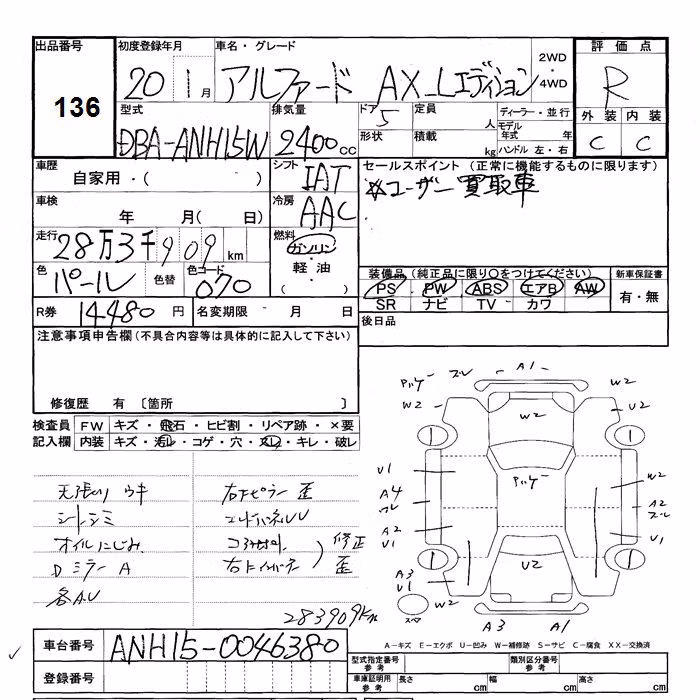 出品番号 136
初度登録年月 20 1月
車名・グレード アルファード AX_Lエディション 2WD・4WD
評価点 R
外装 C 内装 C
型式 DBA-ANH15W
排気量 2400cc
ドア 5 形状
定員 人 積載 kg
ディーラー・並行
モデル年式 年
ハンドル 左・右
車歴 自家用・( )
シフト IAT
セールスポイント (正常に機能するものに限ります)
☆ユーザー買取車
車検 年 月( 日)
冷房 AAC
走行 28万3千909km
燃料 ガソリン・軽油・( )
色 パール 色替 色コード 070
装備品 (純正品に限り○をつけてください) 新車保証書
PS PW ABS エアB AW 有・無
SR ナビ TV カワ
R券 14480円 名変期限 月 日
後日品
注意事項申告欄(不具合内容等は具体的に記入して下さい)
修復歴 有 〔箇所 〕
検査員記入欄 FW キズ・飛石・ヒビ割・リペア跡・×要
内装 キズ・汚レ・コゲ・穴・スレ・キレ・破レ
天張り ウキ 右Fピラー 歪
シートシミ
オイルにじみ 修正
Dミラー A 歪
各A.U
283909Km
A1
W2 W2
W2 U2
U1 W2
A4 A2
A2 U1
U1
U2
A3
U1 W2 W2
A3 A1
A-キズ E-エクボ U-凹み W-補修跡 S-サビ C-腐食 XX-交換済
車台番号 ANH15-0046380
登録番号
型式指定番号 参考 類別区分番号 参考
車庫証明用 参考 長さ cm 幅 cm 高さ cm